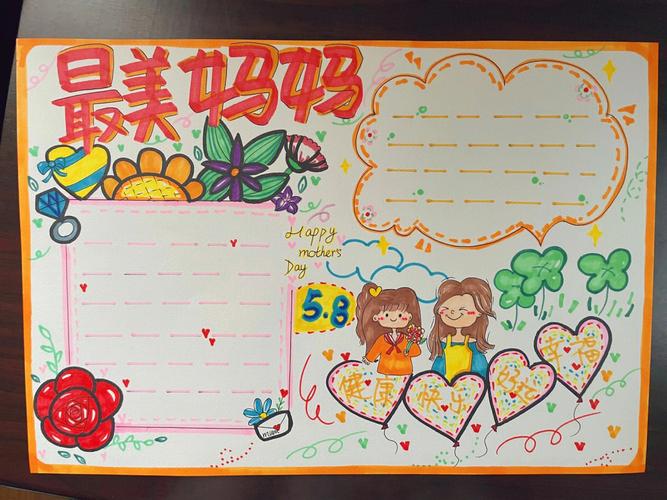 最美妈妈
Happy
mothers
Day
5.8
健康
快乐
幸福